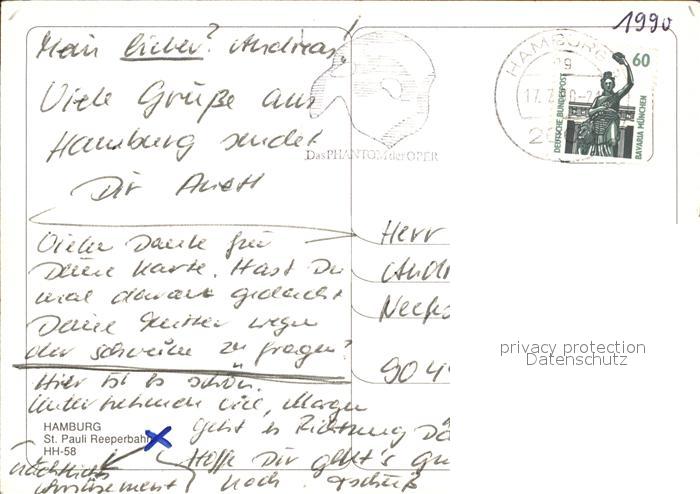 1990
Mein lieber? Andreas!
Viele Grüße aus
Hamburg sendet
Dir Anett
Vielen Danke für
Deine Karte. Hast Du
mal daran gedacht
Deine Mutter wegen
der zu fragen?
Hier ist es schön.
Unternehmen viel, Morgen
geht es Richtung Dä
Hoffe Dir geht's gu
noch. Tschüß
nächtliches
Amüsement
HAMBURG
St. Pauli Reeperbahn
HH-58
Das PHANTOM der OPER
HAMBURG
17.7
DEUTSCHE BUNDESPOST
60
BAVARIA MÜNCHEN
Herr
Andr
904
privacy protection
Datenschutz